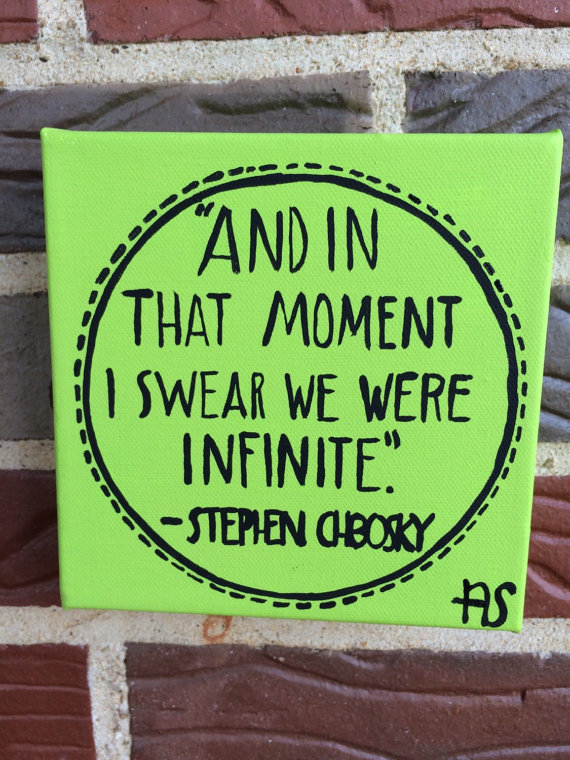 "AND IN
THAT MOMENT
I SWEAR WE WERE
INFINITE."
-STEPHEN CHBOSKY
AS